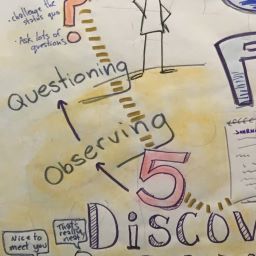 • challenge the
status quo
• Ask lots of
questions
?
Questioning
Observing
5
Discov
Nice to
meet you
That's
really
neat